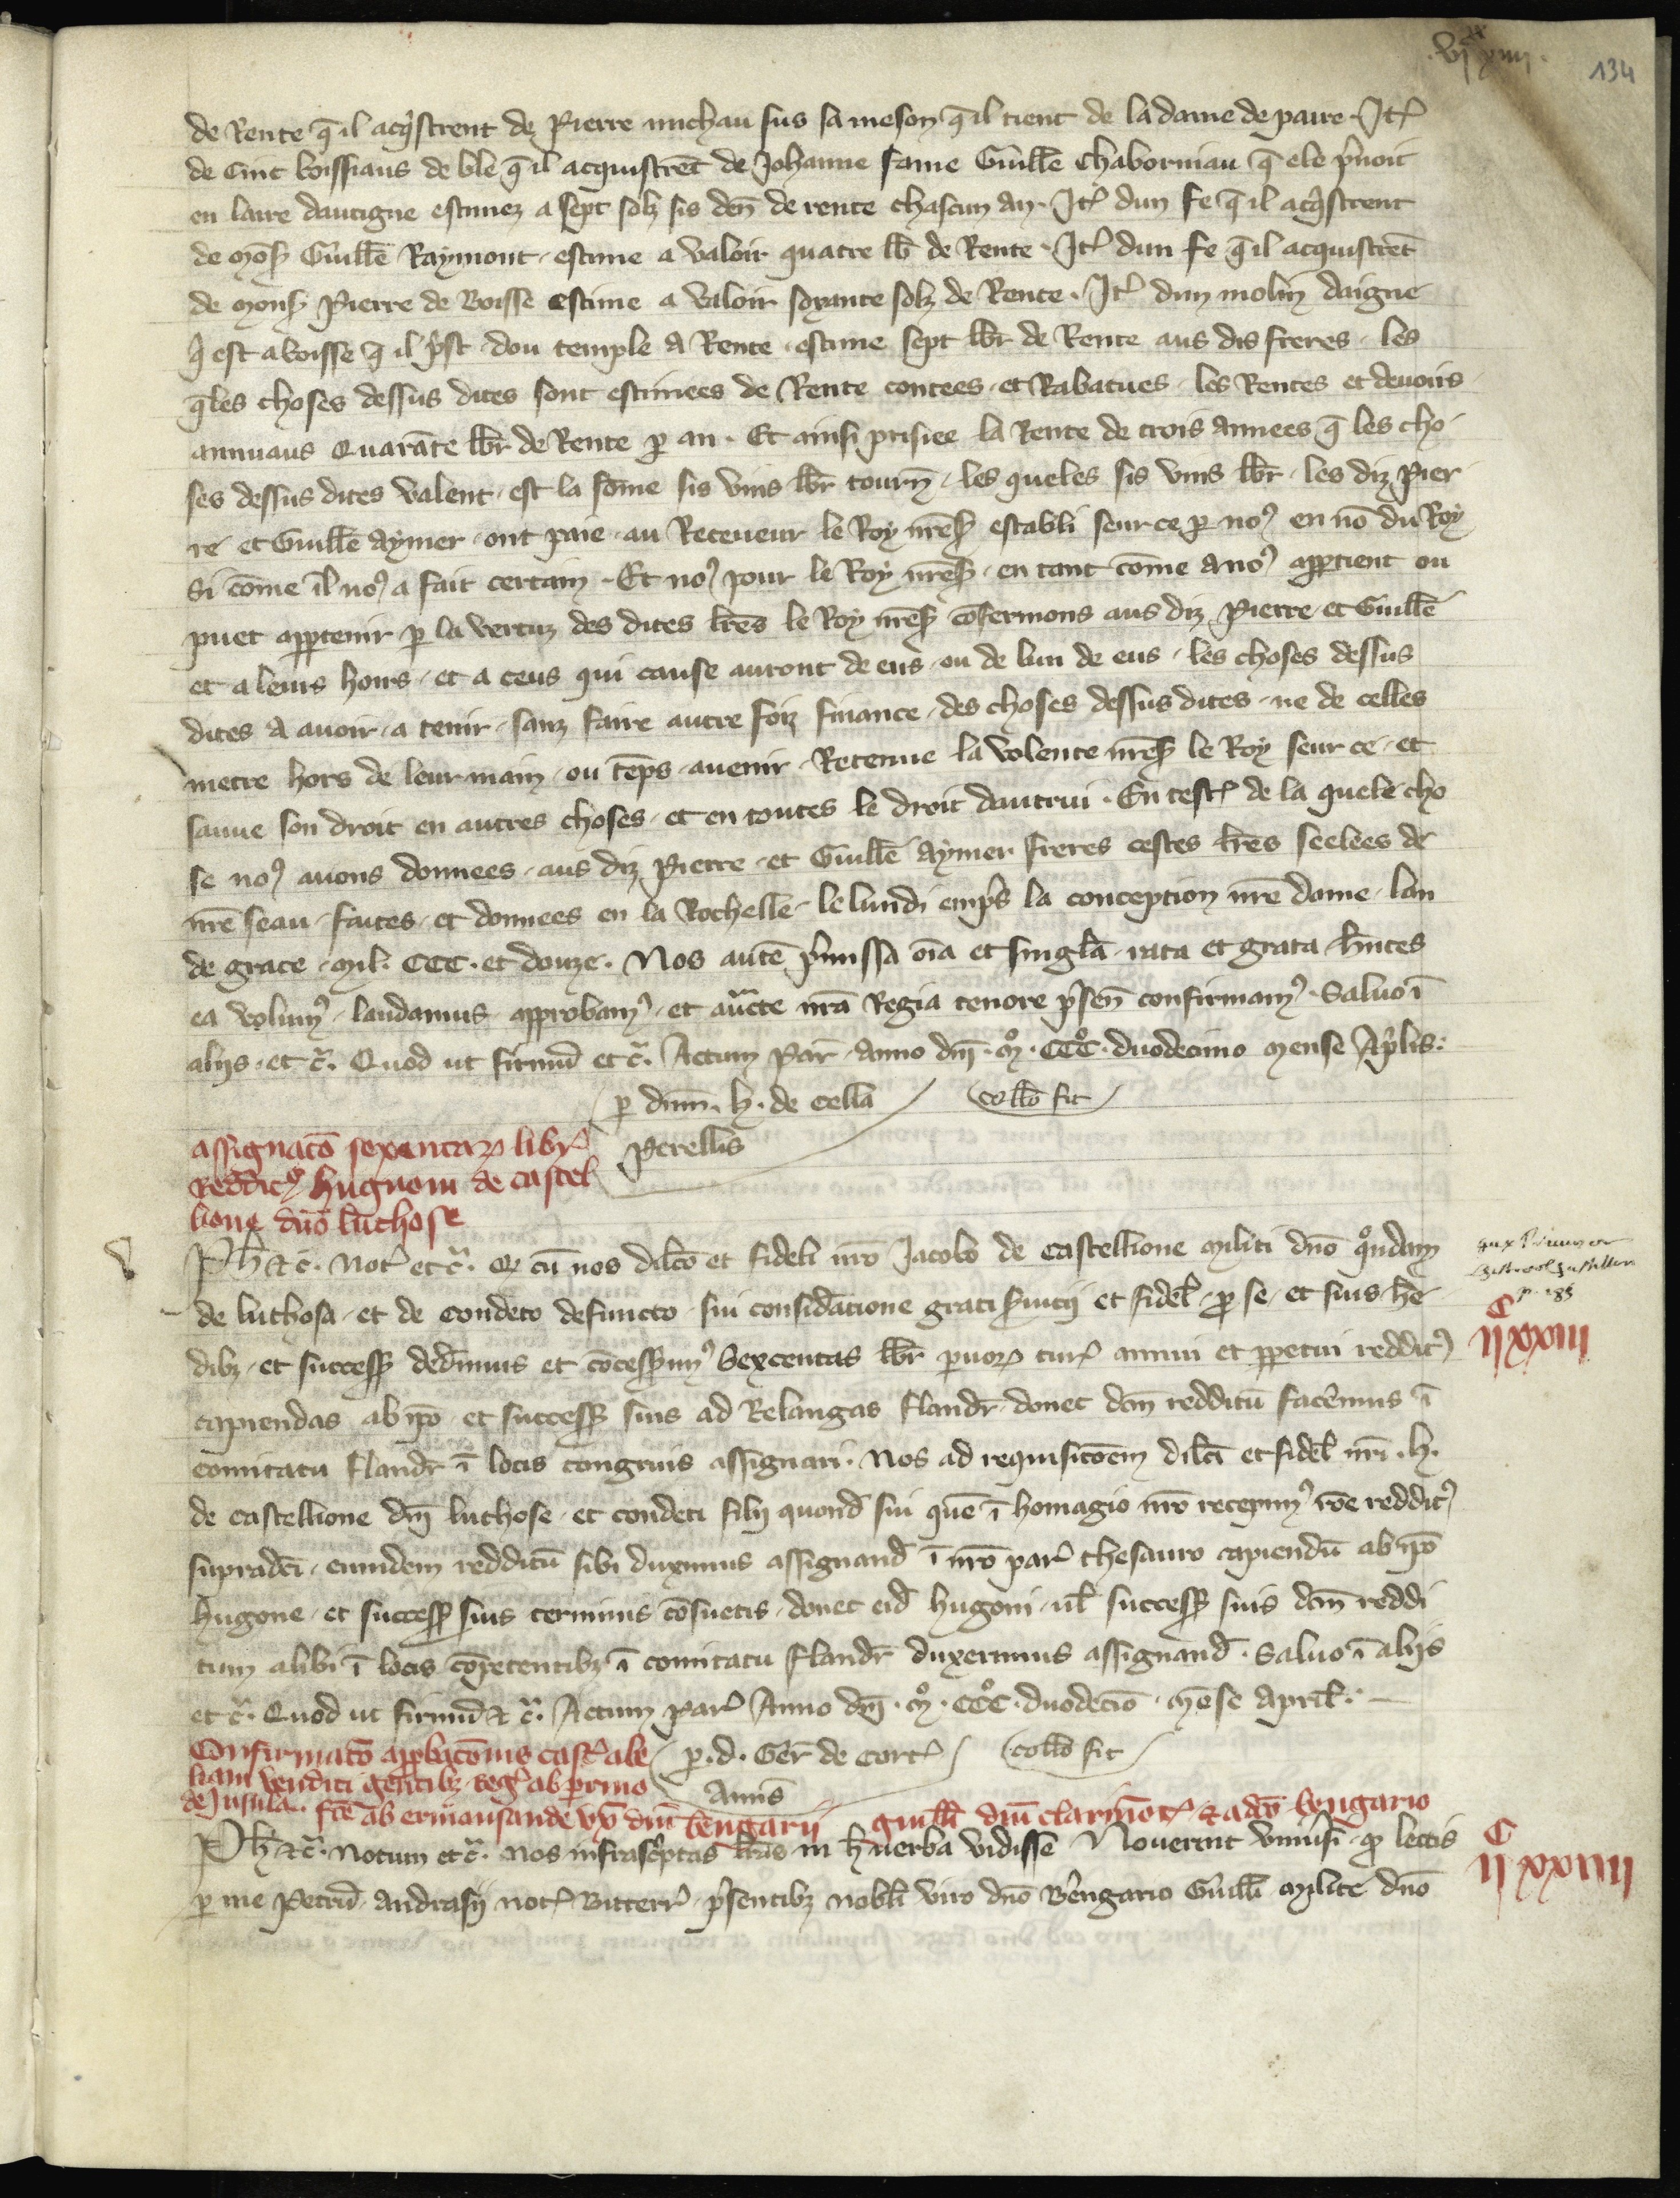 .vjxx xiiii.
134
de Rente q̄ il acq̇strent de Pierre michau sus sa meson q̄ il tient de la dame de paire. It̄
de Cinc boissiaus de ble q̄ il acquistrēt de Johanne fame Guill̄e Chaborniau q̄ ele p̄noit
en laire dantigne estimez a sept solz sis den̄ de rente chascun an. It̄ dun fe q̄ il acq̇strent
de Mōs Guill̄e Raymont. estime a valoir quatre lb̄ de Rente. It̄ dun fe q̄ il acquistrēt
de Mons Pierre de Boisse estime a valoir soyante solz de Rente. It̄ dun molin daigue
q̇ est a boisse q̄ il p̄st dou temple a Rente. estime sept lb̄r de Rente aus dis freres. les
q̄les choses dessus dites sont estimees de Rente contees. et Rabatues. les Rentes et devoirs
annuaus Quarāte lb̄r de Rente p̄ an. Et ainsi prisiee la Rente de trois annees q̄ les cho
ses dessus dites valent. est la sōme sis vins lb̄r tourn̄. les queles sis vins lb̄r. les diz Pier
re et Guill̄e Aymer. ont paie. au Receveur le Roy nr̄es establi seur ce p̄ no9 en nō du Roy
Si cōme il no9 a fait certain. Et no9 pour le Roy nr̄es. en tant cōme a no9 app̄tient ou
puet app̄tenir p̄ la vertuz des dites lr̄es le Roy nr̄es cōfermons aus diz Pierre et Guill̄e
et a leurs hoirs. et a ceus qui cause auront de eus. ou de lun de eus. les choses dessus
dites a avoir. a tenir. sanz faire autre foiz finance. des choses dessus dites. ne de celles
metre hors de leur main. ou tēps. avenir. Retenue la volente nr̄es le Roy seur ce. et
sauve son droit en autres choses. et en toutes le droit dautrui. En test̄ de la quele cho
se no9 avons donnees. aus diz Pierre. et Guill̄e Aymer freres cestes lr̄es seelees de
nr̄e seau. faites. et donnees en la Rochelle. le lundi emp̄s la conception nr̄e dame. lan
de grace. Mil. CCC. et douze. Nos autē p̄missa oīa et singl̄a. rata et grata hn̄tes
ea volum9. laudamus approbam9. et auct̄e nr̄a Regia tenore p̄sen̄ confirmam9. Salvo ī
aliis. et c̄. Quod ut firmū et c̄. Actum Par̄. Anno dn̄i. Mo. CCCo. duodecimo Mense Ap̄lis:
p̄ dn̄m. h. de Cella collō fit
Perellis
assignacō sexentaꝝ libr̄
reddit9 hugnoni de castel
lione dn̄o luthose
Ph̄ et c̄. Not̄ et c̄. Q cū nos dilcō et fideli nr̄o Jacobo de Castellione Militi dn̄o qondam
de luthosa. et de Condeto defuncto. sui considācione grati s̄vicii et fidel̄. p̄ se. et suis he
dibꝫ. et success̄ dedimus et cōcessim9 Sexcentas lb̄r p̄voꝝ tur̄ annui et p̄petui reddit9
capiendas ab ip̄o et success̄ suis ad Relangas flandr̄. donec dc̄m redditū facēmus ī
comitatu flandr̄ ī locis congruis assignari. Nos ad requisicōem dilc̄i et fidel̄ nr̄i. h.
de castellione dn̄i luthose. et condeti filii quond̄ sui quē ī homagio nr̄o recepim9 rōe reddit9
supradc̄i. eumdem redditū sibi duximus assignand̄ ī nr̄o par̄ thesauro capiendū ab ip̄o
hugone. et success̄ suis terminis cōsuetis. donec eid̄ hugoni. ul̄ success̄ suis dc̄m reddi
tum alibi ī locis cōpetentibꝫ ī comitatu flandr̄ duxerimus assignand̄. Salvo ī aliis
et c̄. Quod ut firmū et c̄. Actum Par̄ Anno dn̄i. Mo. CCCo. duodeciō. Mēse April̄.
p. 183
C
ij xxiii
Confirmacō app̄bacōnis cast̄ ale p̄. d. Ger̄ de Cort̄ collō fit
niani venditi gentibꝫ reḡ ab p̄rmo
Amis̄
de Insula. fcē ab ermansande uxō dn̄i bēngarii guill̄i dn̄i clarimōt̄ et a dcō bēngario
Ph̄ et c̄. Notum et c̄. Nos infrascp̄tas lr̄as in h̄ verba vidisse Noverint univ̄si. qd̄ lectis
C
ij xxiiii
p̄ me Petrū Andrasii not̄ Bitterr̄. p̄sentibꝫ nobl̄i viro dn̄o Bēngario Guill̄i Milite dn̄o